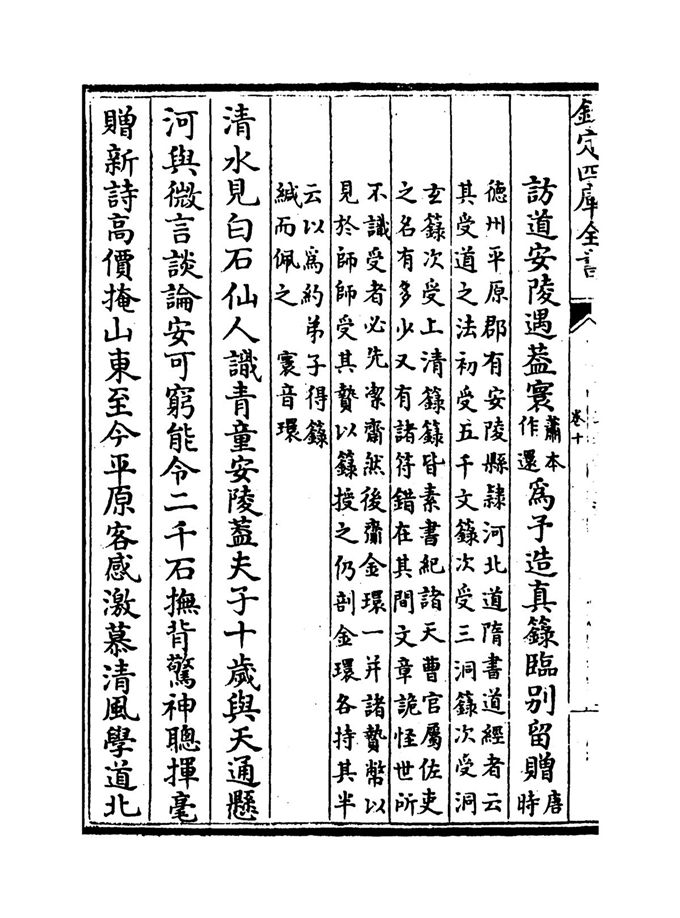 欽定四庫全書
卷十
訪道安陵遇蓋寰蕭本作還為予造真籙臨別留贈唐時
德州平原郡有安陵縣隷河北道隋書道經者云
其受道之法初受五千文籙次受三洞籙次受洞
玄籙次受上清籙籙皆素書紀諸天曹官屬佐吏
之名有多少又有諸符錯在其間文章詭怪世所
不識受者必先潔齋然後齎金環一并諸贄幣以
見於師師受其贄以籙授之仍剖金環各持其半
云以為約弟子得籙
緘而佩之　寰音環
清水見白石仙人識青童安陵蓋夫子十歲與天通懸
河與微言談論安可窮能令二千石撫背驚神聰揮毫
贈新詩高價掩山東至今平原客感激慕清風學道北